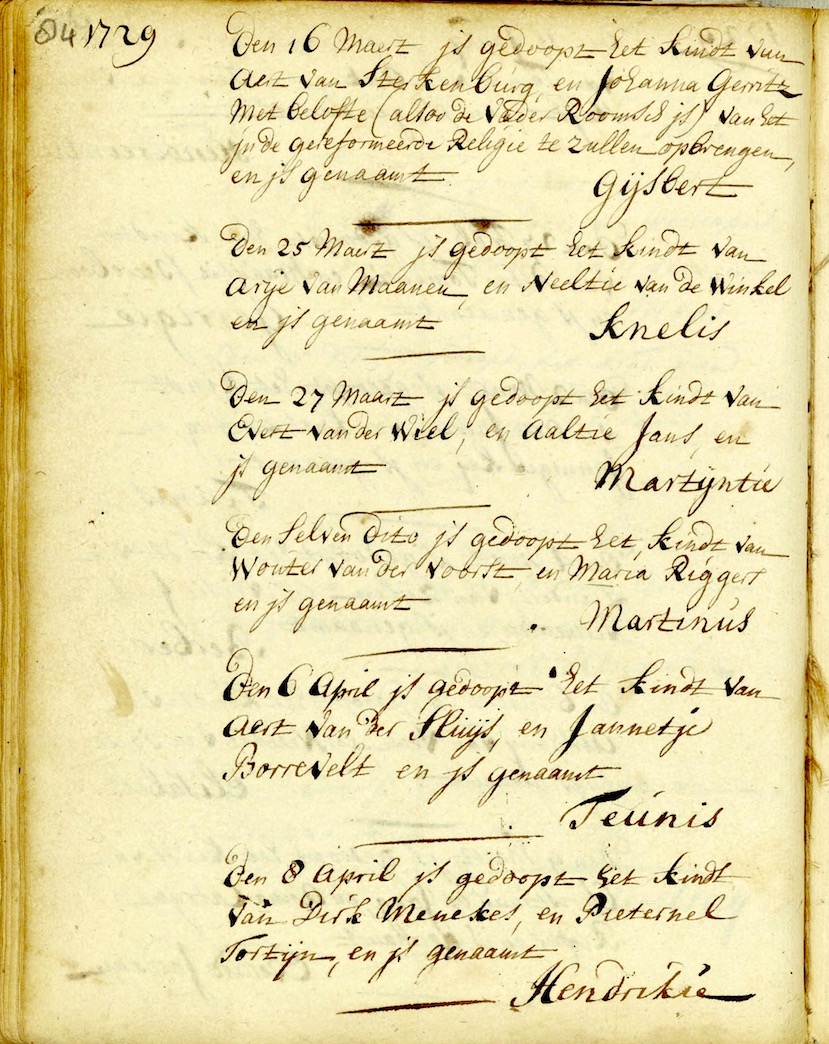 84 1729
Den 16 Maert js gedoopt het kindt van
Aert van Sterkenburg, en Johanna Gerritz
Met belofte (alsoo de Vader Roomsch js) van het
jn de gereformeerde Religie te zullen opbrengen,
en js genaamt
Gijsbert
Den 25 Maert js gedoopt het kindt van
Arije van Maanen, en Neeltie van de Winkel
en js genaamt
Knelis
Den 27 Maart js gedoopt het kindt van
Evert van der Wiel, en Aaltie Jans, en
js genaamt
Martijntie
Den selven dito js gedoopt het kindt van
Wouter van der Voorst, en Maria Riggert
en js genaamt
Martinus
Den 6 April js gedoopt het kindt van
Aert van der Sluijs, en Jannetje
Borrevelt en js genaamt
Teunis
Den 8 April js gedoopt het kindt
van Dirk Menekes, en Pieternel
Tortijn, en js genaamt
Hendrikie